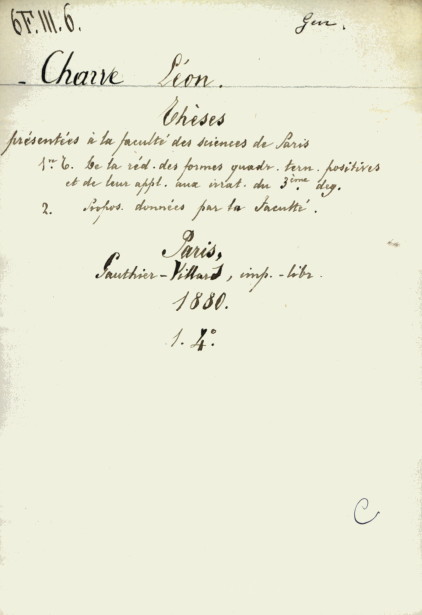 6F.III.6.
Gen.
- Charve Léon.
Thèses
présentées à la faculté des sciences de Paris
1re T. De la réd. des formes quadr. tern. positives
et de leur appl. aux irrat. du 3ème deg.
2. Propos. données par la Faculté.
Paris,
Gauthier-Villars, imp.-libr.
1880.
1. 4°.
C